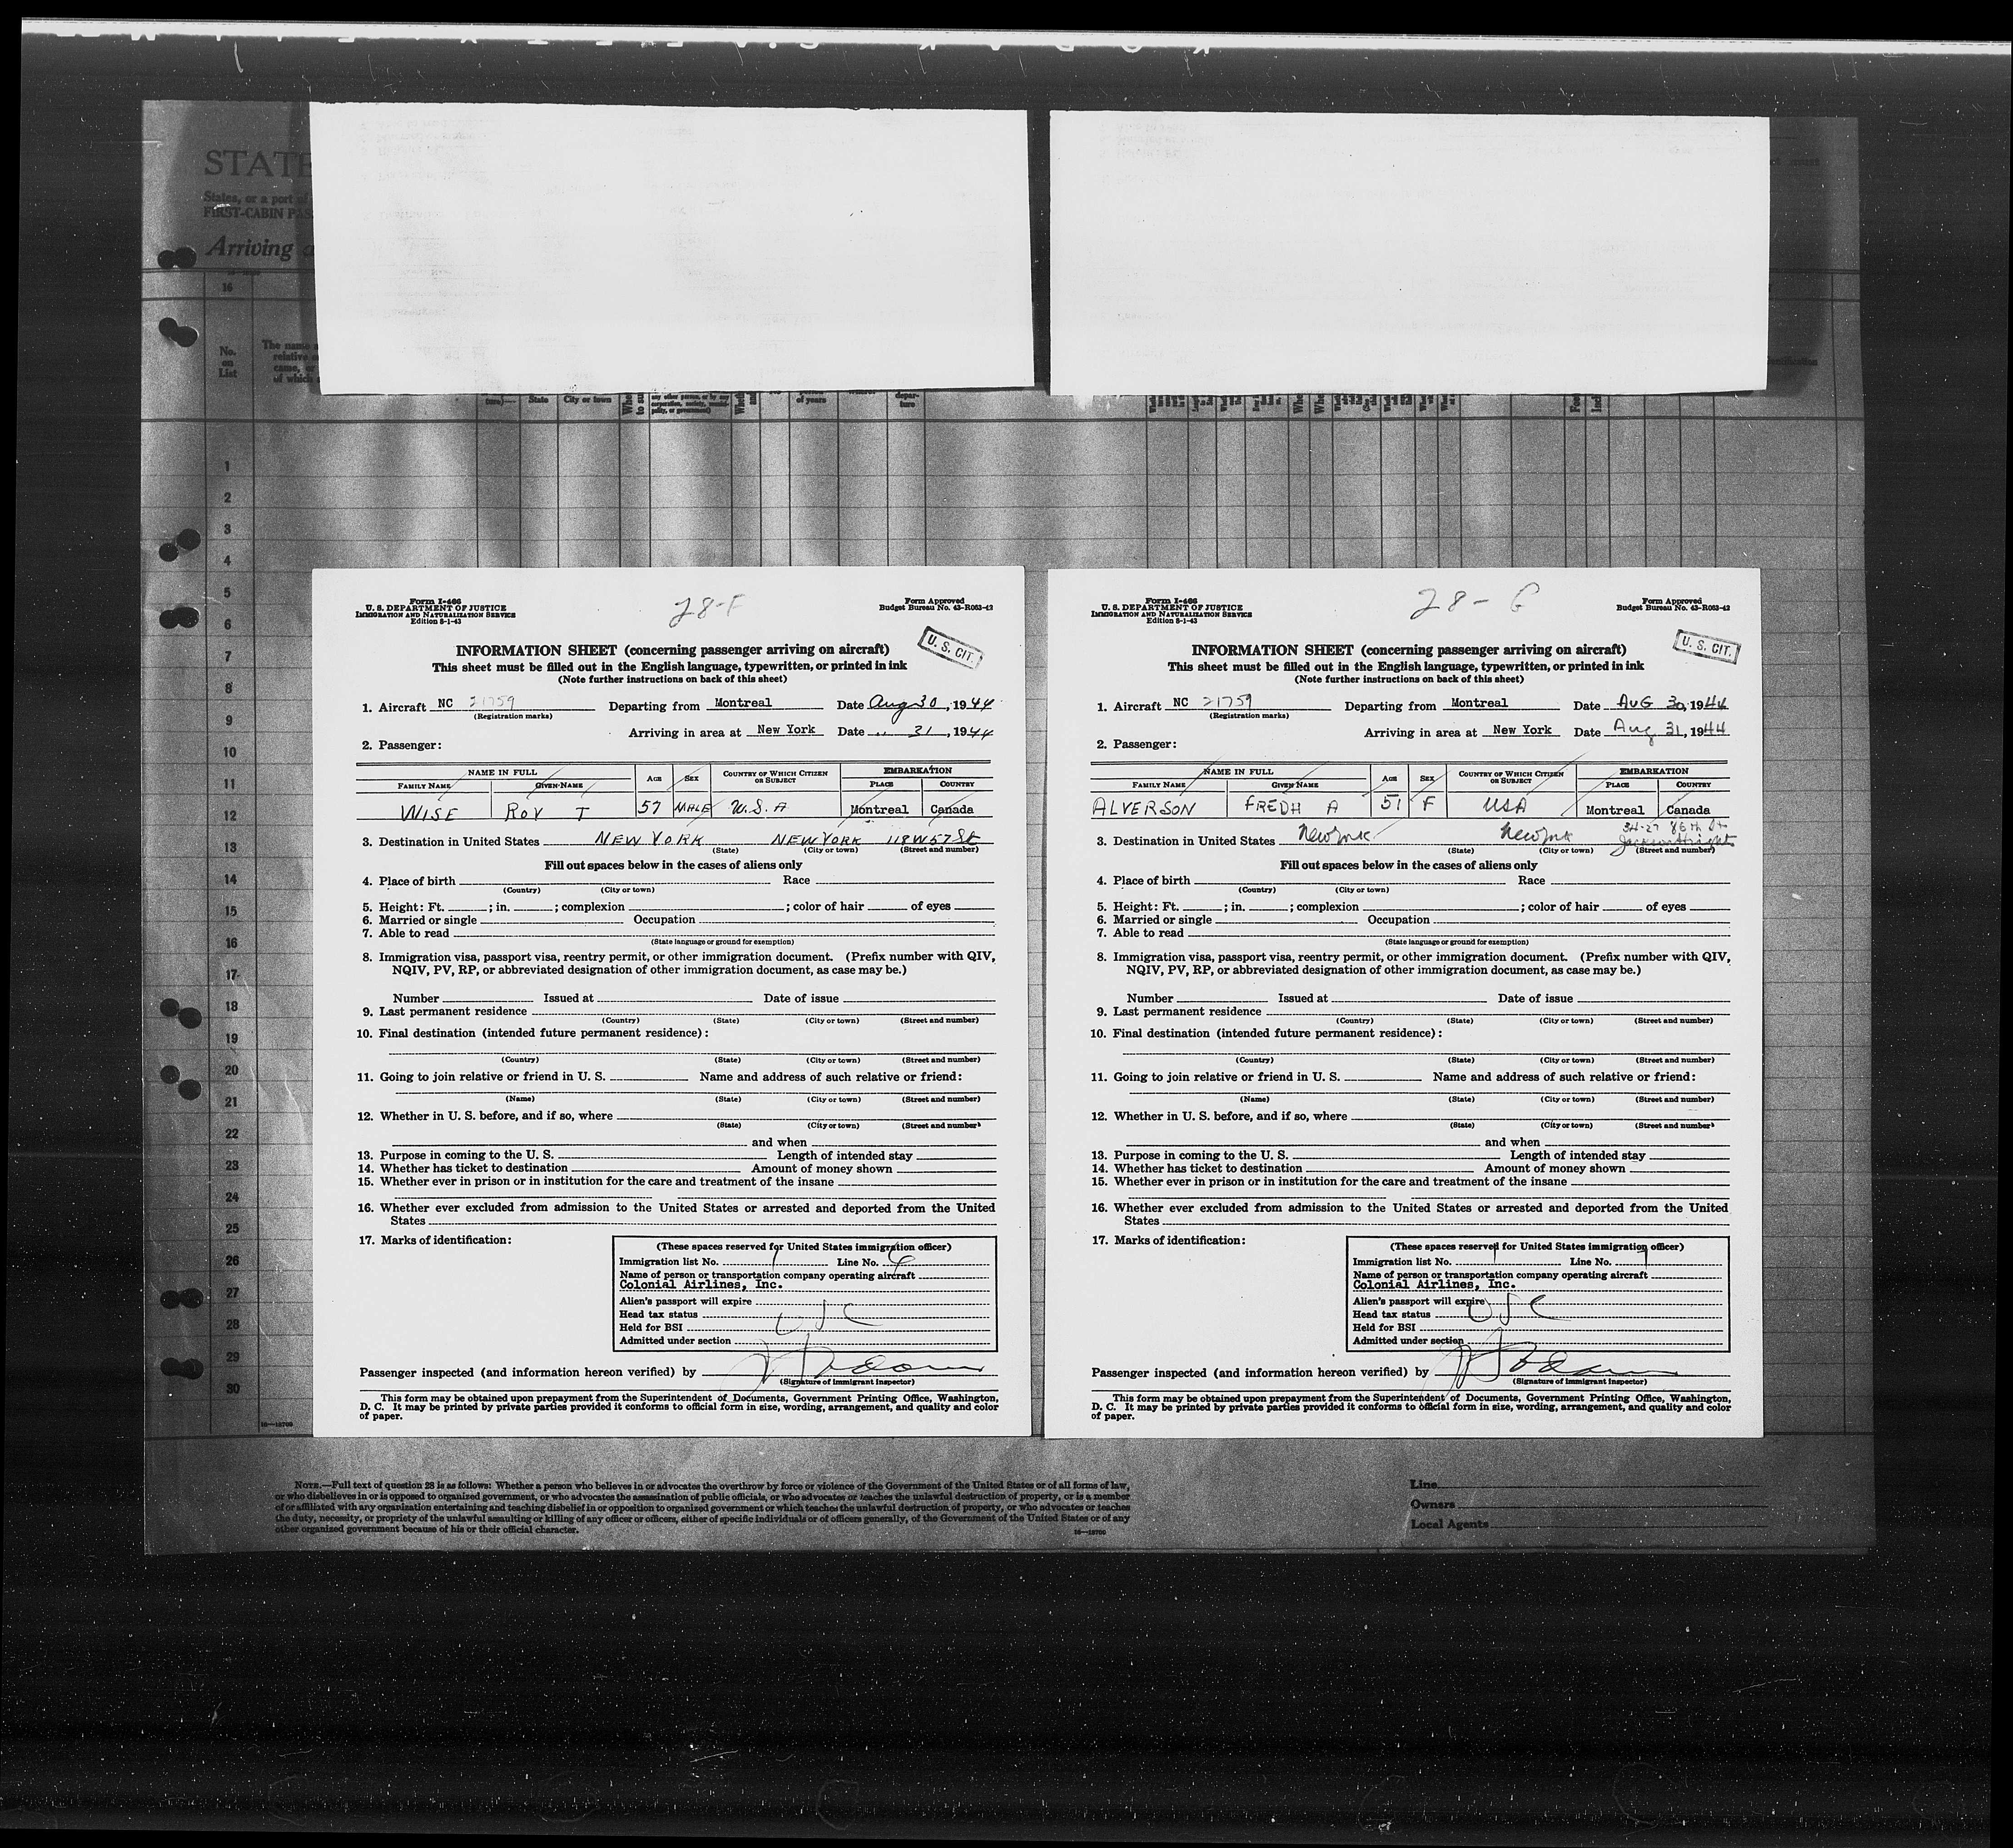 STATE
States, or a part of
FIRST-CABIN PAS
Arriving a
16
No.
on
List
The name
relative o
came, or
of which
State
City or town
any other person, or by any
corporation, society, munici-
pality, or government)
of years
depar-
ture
1
2
3
4
5
6
7
8
9
10
11
12
13
14
15
16
17
18
19
20
21
22
23
24
25
26
27
28
29
30
Form I-466
U. S. DEPARTMENT OF JUSTICE
IMMIGRATION AND NATURALIZATION SERVICE
Edition 8-1-43
28-F
Form Approved
Budget Bureau No. 43-R063-42
U. S. CIT.
INFORMATION SHEET (concerning passenger arriving on aircraft)
This sheet must be filled out in the English language, typewritten, or printed in ink
(Note further instructions on back of this sheet)
1. Aircraft NC 21759 Departing from Montreal Date Aug 30, 1944
(Registration marks)
Arriving in area at New York Date " 31, 1944
2. Passenger:
NAME IN FULL AGE SEX COUNTRY OF WHICH CITIZEN OR SUBJECT EMBARKATION
FAMILY NAME GIVEN NAME PLACE COUNTRY
WISE ROY T 57 MALE U.S.A Montreal Canada
3. Destination in United States NEW YORK NEW YORK 118 W 57 St
(State) (City or town) (Street and number)
Fill out spaces below in the cases of aliens only
4. Place of birth Race
(Country) (City or town)
5. Height: Ft. ; in. ; complexion ; color of hair of eyes
6. Married or single Occupation
7. Able to read
(State language or ground for exemption)
8. Immigration visa, passport visa, reentry permit, or other immigration document. (Prefix number with QIV,
NQIV, PV, RP, or abbreviated designation of other immigration document, as case may be.)
Number Issued at Date of issue
9. Last permanent residence
(Country) (State) (City or town) (Street and number)
10. Final destination (intended future permanent residence):
(Country) (State) (City or town) (Street and number)
11. Going to join relative or friend in U. S. Name and address of such relative or friend:
(Name) (State) (City or town) (Street and number)
12. Whether in U. S. before, and if so, where
(State) (City or town) (Street and number)
and when
13. Purpose in coming to the U. S. Length of intended stay
14. Whether has ticket to destination Amount of money shown
15. Whether ever in prison or in institution for the care and treatment of the insane
16. Whether ever excluded from admission to the United States or arrested and deported from the United
States
17. Marks of identification:
(These spaces reserved for United States immigration officer)
Immigration list No. 1 Line No. 6
Name of person or transportation company operating aircraft
Colonial Airlines, Inc.
Alien's passport will expire
Head tax status USC
Held for BSI
Admitted under section
Passenger inspected (and information hereon verified) by
(Signature of immigrant inspector)
This form may be obtained upon prepayment from the Superintendent of Documents, Government Printing Office, Washington,
D. C. It may be printed by private parties provided it conforms to official form in size, wording, arrangement, and quality and color
of paper.
Form I-466
U. S. DEPARTMENT OF JUSTICE
IMMIGRATION AND NATURALIZATION SERVICE
Edition 8-1-43
28-G
Form Approved
Budget Bureau No. 43-R063-42
U. S. CIT.
INFORMATION SHEET (concerning passenger arriving on aircraft)
This sheet must be filled out in the English language, typewritten, or printed in ink
(Note further instructions on back of this sheet)
1. Aircraft NC 21759 Departing from Montreal Date AUG 30, 1944
(Registration marks)
Arriving in area at New York Date Aug 31, 1944
2. Passenger:
NAME IN FULL AGE SEX COUNTRY OF WHICH CITIZEN OR SUBJECT EMBARKATION
FAMILY NAME GIVEN NAME PLACE COUNTRY
ALVERSON FREDH A 51 F USA Montreal Canada
34-27 86th St
3. Destination in United States New York New York Jackson Heights
(State) (City or town) (Street and number)
Fill out spaces below in the cases of aliens only
4. Place of birth Race
(Country) (City or town)
5. Height: Ft. ; in. ; complexion ; color of hair of eyes
6. Married or single Occupation
7. Able to read
(State language or ground for exemption)
8. Immigration visa, passport visa, reentry permit, or other immigration document. (Prefix number with QIV,
NQIV, PV, RP, or abbreviated designation of other immigration document, as case may be.)
Number Issued at Date of issue
9. Last permanent residence
(Country) (State) (City or town) (Street and number)
10. Final destination (intended future permanent residence):
(Country) (State) (City or town) (Street and number)
11. Going to join relative or friend in U. S. Name and address of such relative or friend:
(Name) (State) (City or town) (Street and number)
12. Whether in U. S. before, and if so, where
(State) (City or town) (Street and number)
and when
13. Purpose in coming to the U. S. Length of intended stay
14. Whether has ticket to destination Amount of money shown
15. Whether ever in prison or in institution for the care and treatment of the insane
16. Whether ever excluded from admission to the United States or arrested and deported from the United
States
17. Marks of identification:
(These spaces reserved for United States immigration officer)
Immigration list No. 1 Line No. 7
Name of person or transportation company operating aircraft
Colonial Airlines, Inc.
Alien's passport will expire
Head tax status USC
Held for BSI
Admitted under section
Passenger inspected (and information hereon verified) by
(Signature of immigrant inspector)
This form may be obtained upon prepayment from the Superintendent of Documents, Government Printing Office, Washington,
D. C. It may be printed by private parties provided it conforms to official form in size, wording, arrangement, and quality and color
of paper.
16—18700
NOTE.—Full text of question 28 is as follows: Whether a person who believes in or advocates the overthrow by force or violence of the Government of the United States or of all forms of law,
or who disbelieves in or is opposed to organized government, or who advocates the assassination of public officials, or who advocates or teaches the unlawful destruction of property, or is a member
of or affiliated with any organization entertaining and teaching disbelief in or opposition to organized government or which teaches the unlawful destruction of property, or who advocates or teaches
the duty, necessity, or propriety of the unlawful assaulting or killing of any officer or officers, either of specific individuals or of officers generally, of the Government of the United States or of any
other organized government because of his or their official character.
16—18700
Line
Owners
Local Agents